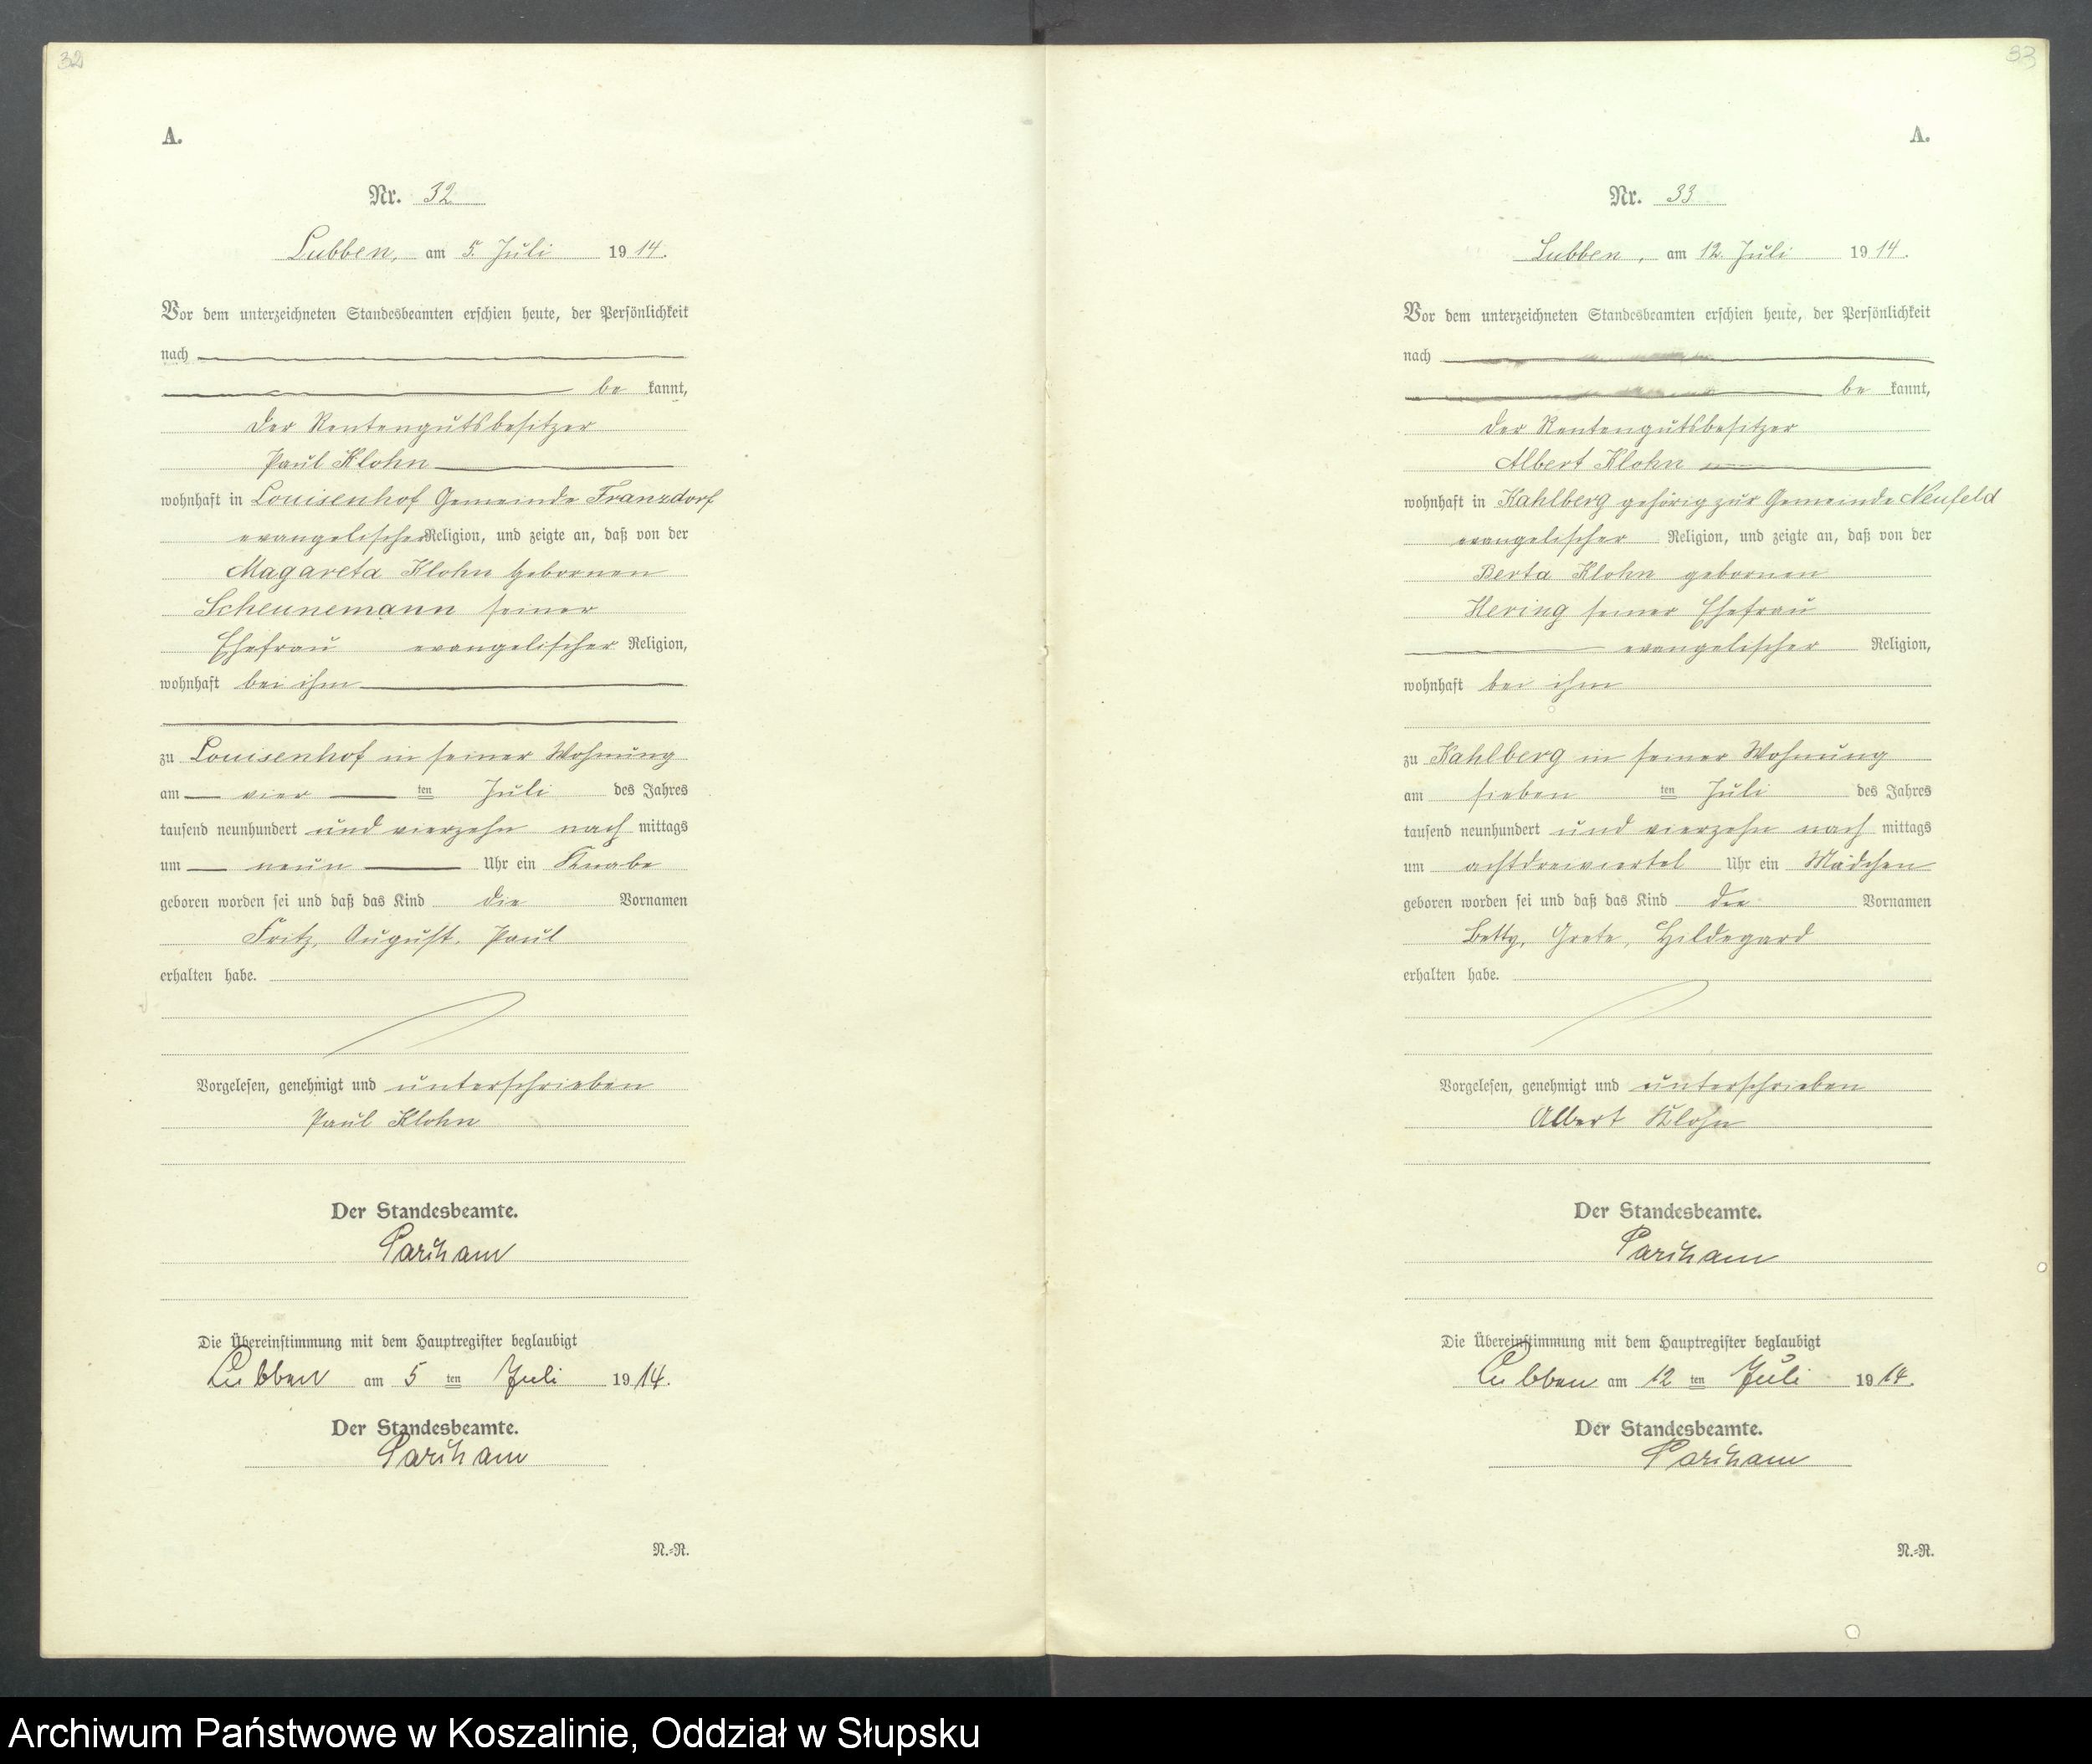 32
A.
Nr. 32
Lubben, am 5. Juli 1914.
Vor dem unterzeichneten Standesbeamten erschien heute, der Persönlichkeit
nach
be kannt,
der Rentengutsbesitzer
Paul Klohn
wohnhaft in Louisenhof Gemeinde Franzdorf
evangelischer Religion, und zeigte an, daß von der
Magareta Klohn gebornen
Scheunemann seiner
Ehefrau evangelischer Religion,
wohnhaft bei ihm
zu Louisenhof in seiner Wohnung
am vier ten Juli des Jahres
tausend neunhundert und vierzehn nach mittags
um neun Uhr ein Knabe
geboren worden sei und daß das Kind die Vornamen
Fritz, August, Paul
erhalten habe.
Vorgelesen, genehmigt und unterschrieben
Paul Klohn
Der Standesbeamte.
Die Übereinstimmung mit dem Hauptregister beglaubigt
Lubben am 5 ten Juli 1914.
Der Standesbeamte.
N.=R.
33
A.
Nr. 33
Lubben, am 12. Juli 1914.
Vor dem unterzeichneten Standesbeamten erschien heute, der Persönlichkeit
nach
be kannt,
der Rentengutsbesitzer
Albert Klohn
wohnhaft in Kahlberg gehörig zur Gemeinde Neufeld
evangelischer Religion, und zeigte an, daß von der
Berta Klohn gebornen
Hering seiner Ehefrau
evangelischer Religion,
wohnhaft bei ihm
zu Kahlberg in seiner Wohnung
am sieben ten Juli des Jahres
tausend neunhundert und vierzehn nach mittags
um achtdreiviertel Uhr ein Mädchen
geboren worden sei und daß das Kind die Vornamen
Betty, Grete, Hildegard
erhalten habe.
Vorgelesen, genehmigt und unterschrieben
Albert Klohn
Der Standesbeamte.
Die Übereinstimmung mit dem Hauptregister beglaubigt
Lubben am 12 ten Juli 1914.
Der Standesbeamte.
N.=R.
Archiwum Państwowe w Koszalinie, Oddział w Słupsku